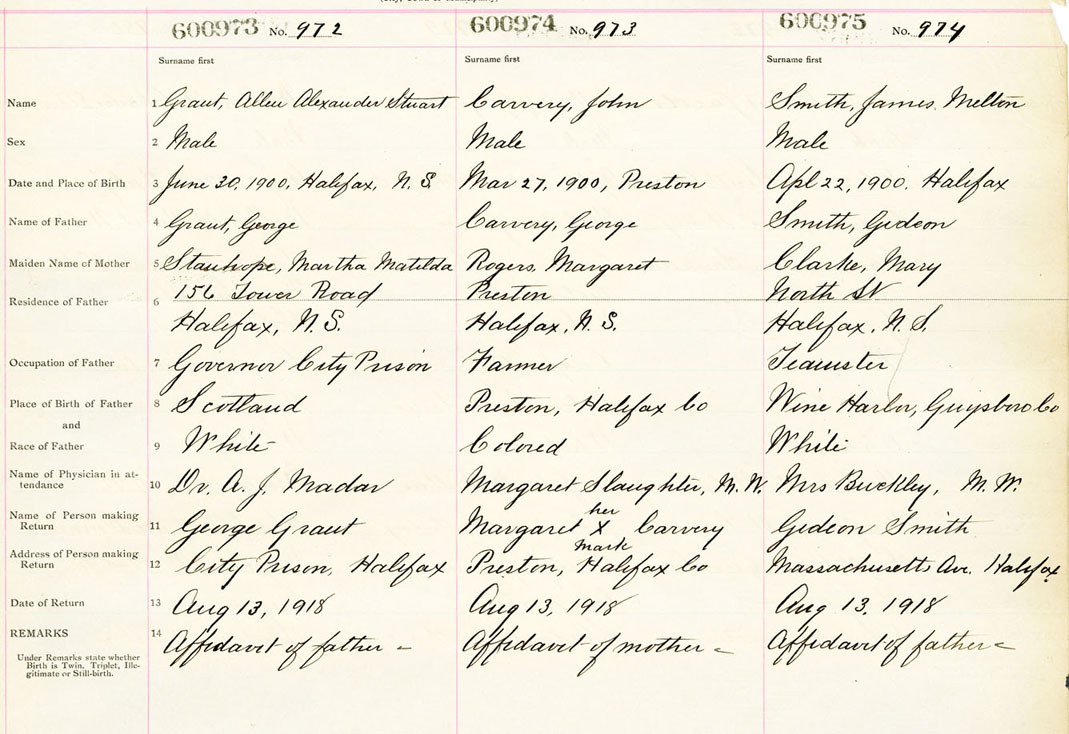 600973 No. 972
600974 No. 973
600975 No. 974
Surname first
Surname first
Surname first
Name 1 Grant, Allen Alexander Stuart Carvery, John Smith, James Melton
Sex 2 Male Male Male
Date and Place of Birth 3 June 30, 1900, Halifax, N. S. Mar 27, 1900, Preston Apl 22, 1900. Halifax
Name of Father 4 Grant, George Carvery, George Smith, Gideon
Maiden Name of Mother 5 Stanhope, Martha Matilda Rogers, Margaret Clarke, Mary
Residence of Father 6 156 Tower Road Preston North St
Halifax, N. S. Halifax, N. S. Halifax, N. S.
Occupation of Father 7 Governor City Prison Farmer Teamster
Place of Birth of Father 8 Scotland Preston, Halifax Co Wine Harbor, Guysboro Co
and
Race of Father 9 White Colored White
Name of Physician in at-
tendance 10 Dr. A. J. Madar Margaret Slaughter, M. W. Mrs Buckley, M. W.
Name of Person making
Return 11 George Grant Margaret her X mark Carvery Gideon Smith
Address of Person making
Return 12 City Prison, Halifax Preston, Halifax Co Massachusett Ave. Halifax
Date of Return 13 Aug 13, 1918 Aug 13, 1918 Aug 13, 1918
REMARKS 14 Affidavit of father - Affidavit of mother - Affidavit of father -
Under Remarks state whether
Birth is Twin, Triplet, Ille-
gitimate or Still-birth.